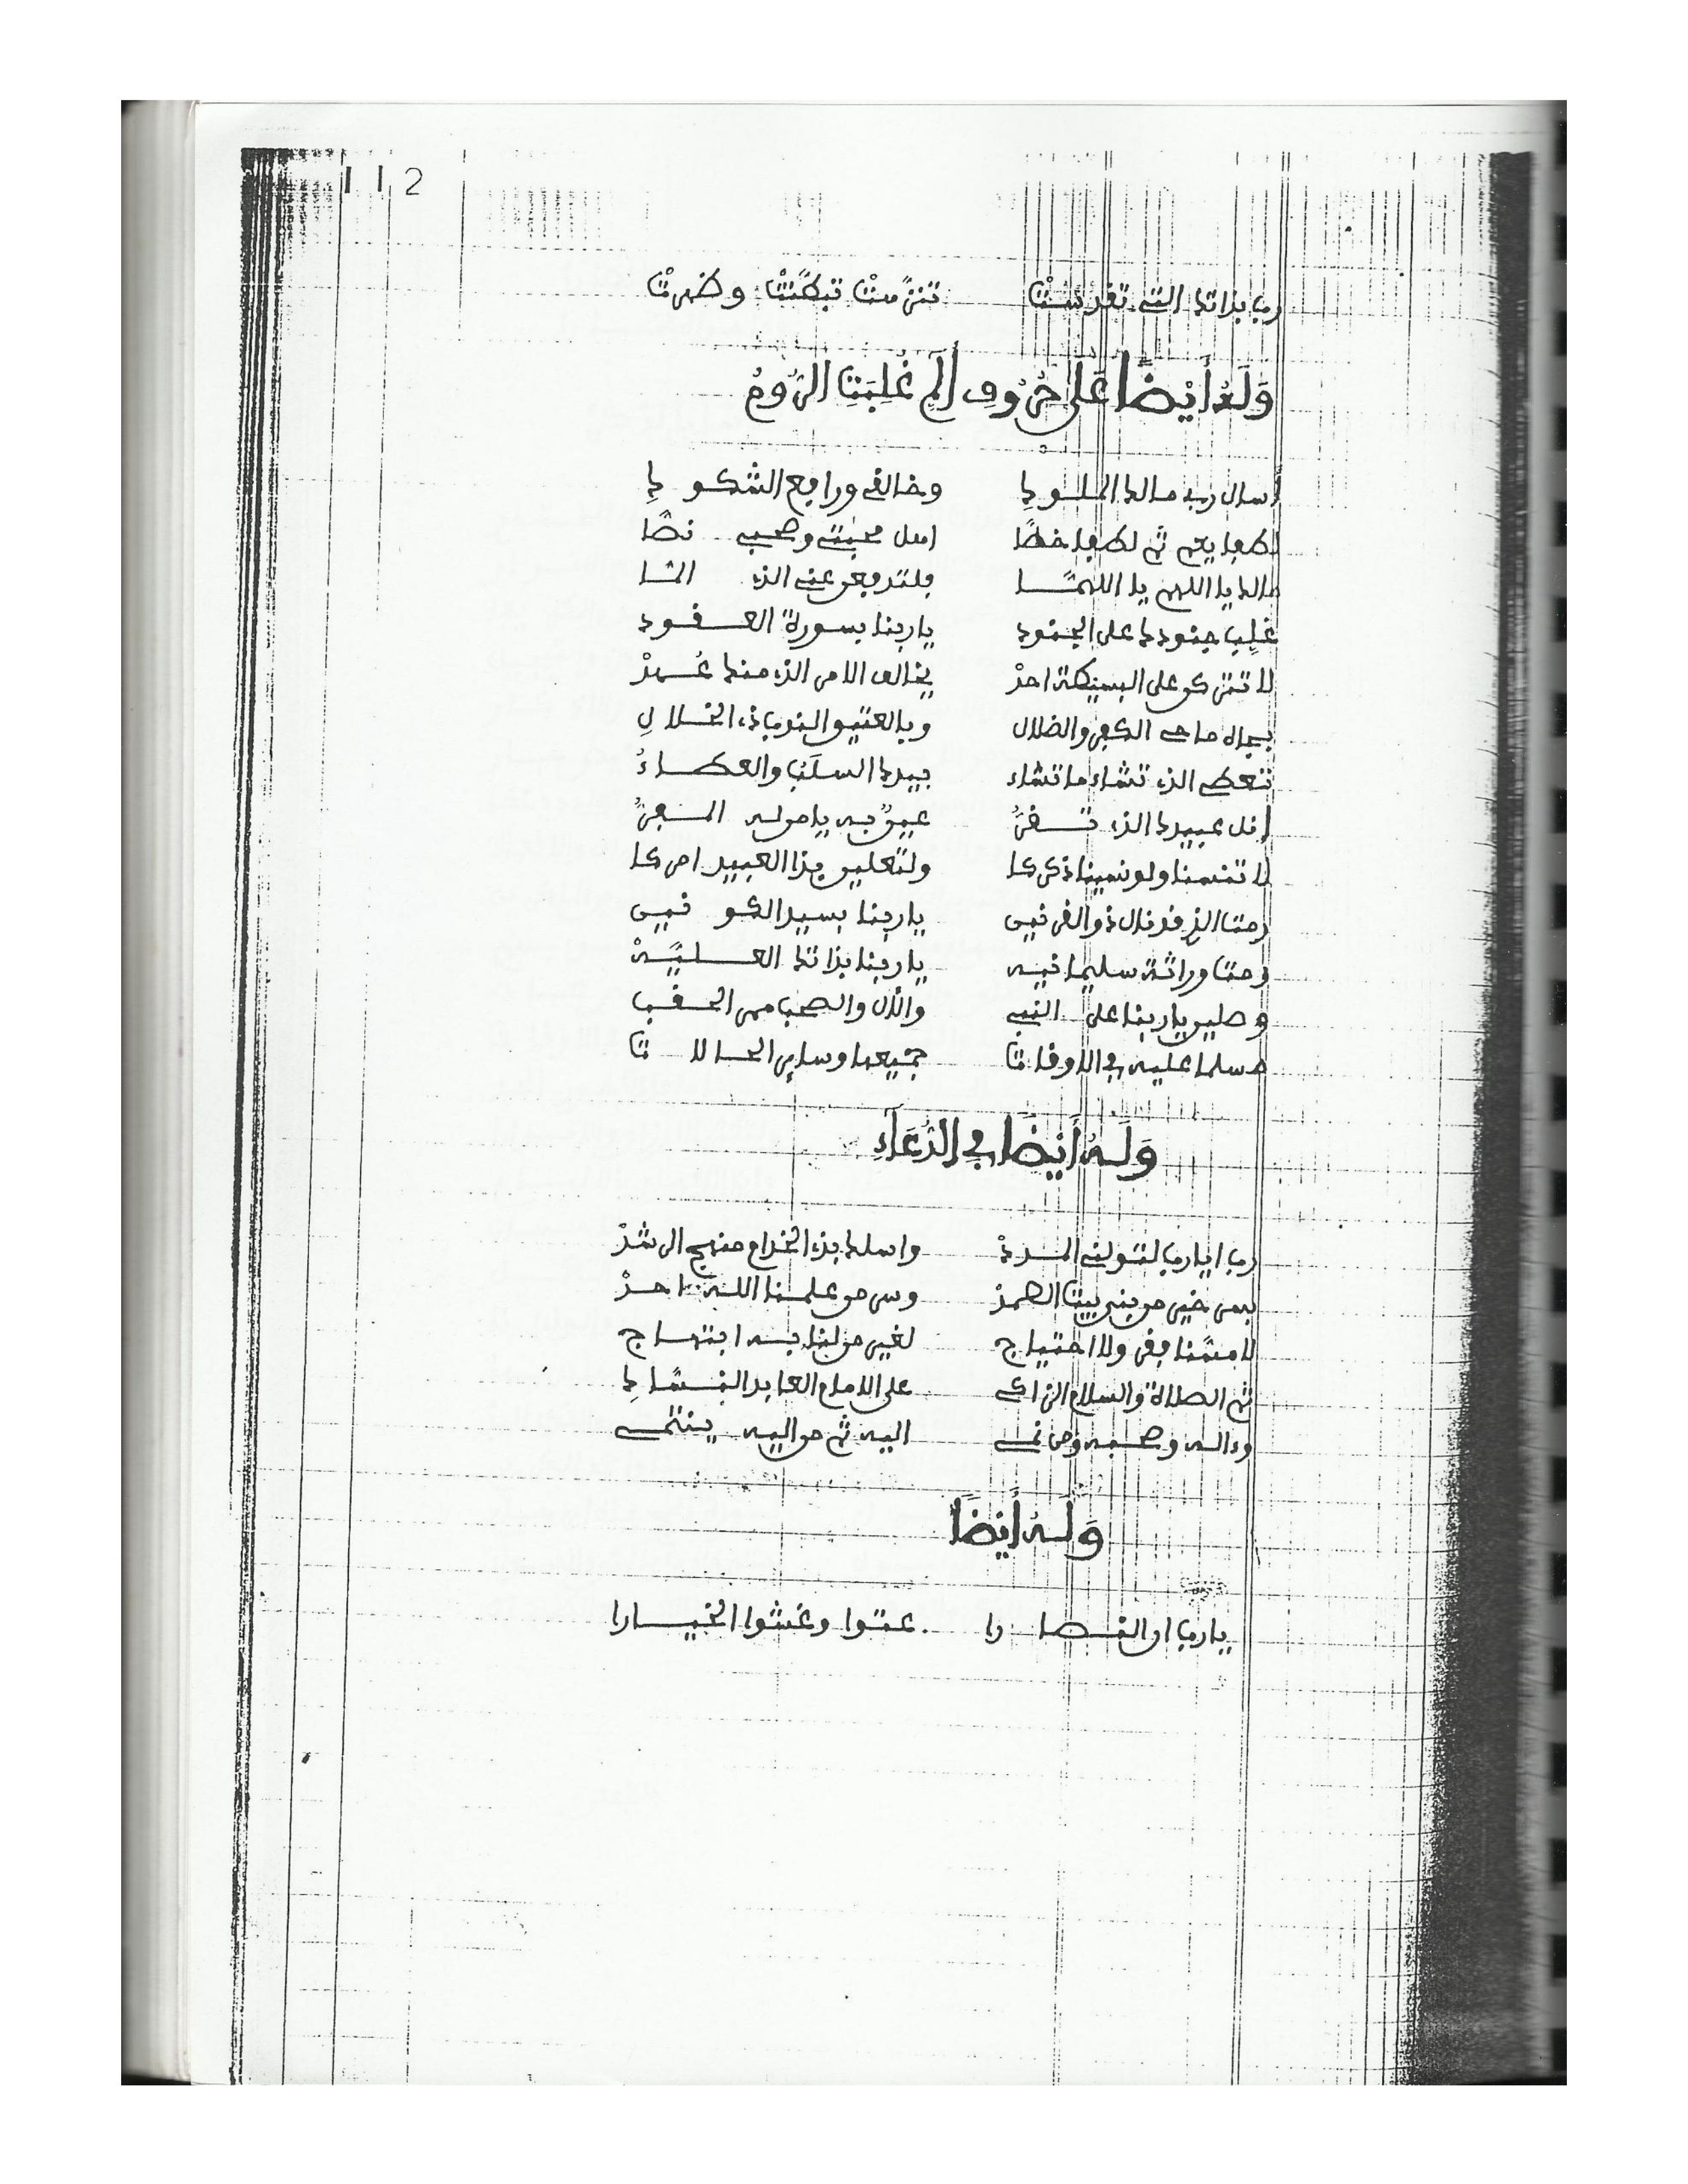 112
رب بذاتك التي تقدست تنزهت تبطنت وظهرت
وَلَهُ أَيْضًا عَلَى حُرُوفِ الَمِّ غُلِبَتِ الرُّومُ
أسال رب مالك الملوك وخالقي ورافع الشكوك
لطفا يعم ثم لطفا خصا اهل محبتي وصحبي نصا
مالك يا اللهم يا اللهما فلتدفعن عني الذي
غلب جنودك على الجنود يا ربنا بسورة العقود
لا تتركن على البسيطة احد يخالف الامر الذي منك عهد
بجاه ماحي الكفر والضلال وبالعتيق الندب ذي الخلال
تعطي الذي تشاء ما تشاء بيدك السلب والعطاء
انل عبيدك الذي تقر عين به يا من له المفر
لا تنسنا ولو نسينا ذكركا ولتعلين بذا العبيد امركا
رمت الذي قد نال ذو القرنين يا ربنا بسيد الكونين
ومت وراثة سليمانيه يا ربنا بذاتك العليه
وصلين يا ربنا على النبي والآل والصحب ممر الحقب
مسلما عليه في الاوقات جميعها وساير الحالات
وَلَهُ أَيْضًا فِي الدُّعَاءِ
رب ايا رب لتولني المدد واسلك بذي الخدام منهج الرشد
بسر خير من بنى بيت الصمد وسر من علمنا الله احد
لا مسنا فقر ولا احتياج لغير من لنا به ابتهاج
ثم الصلاة والسلام الزاكي على الامام العابد النساك
وءاله وصحبه ومن نمي اليه ثم من اليه ينتمي
وَلَهُ أَيْضًا
يا رب ان النصارا عتوا وغشوا الخيارا